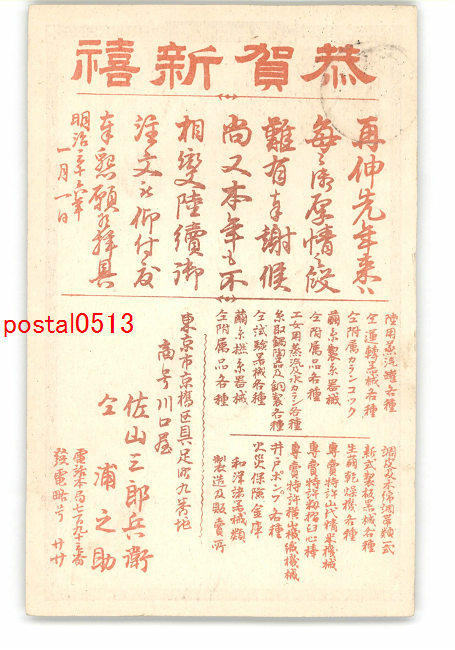 恭賀新禧
再伸先年来ハ
毎々御厚情ヲ蒙
難有奉謝候
尚又本年も不
相変陸續御
注文被仰付度
奉懇願候拝具
明治三十六年
一月一日
陸用蒸汽罐各種
仝運轉器械各種
仝附属カランコック
繭糸製糸器械
仝附属品各種
工女用蒸汽及水カラン各種
糸取鍋陶器及銅製各種
仝試驗器械各種
繭糸撚糸器械
仝附属品各種
調皮及木綿調革類一式
新式製板器械各種
生繭乾燥機各種
專賣特許山代精米機械
專賣特許籾摺臼心棒
專賣特許横山機織機械
井戸ポンプ各種
火災保險金庫
和洋諸器械類
製造及販賣所
東京市京橋區具足町九番地
商号川口屋
佐山三郎兵衛
仝浦之助
電話本局七百九十三番
發電略号 サ サ
postal0513